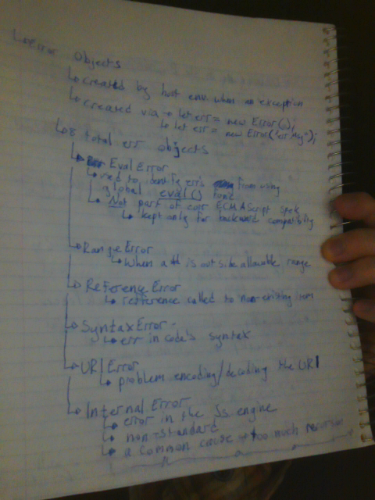 Error Objects
created by host env. when an exception
created via → let err = new Error();
→ let err = new Error("err Msg");
8 total err objects
EvalError
used to identify errs from using
global eval() func
Not part of curr ECMAScript spec
kept only for backward compatibility
RangeError
When a # is outside allowable range
ReferenceError
reference called to non-existing
SyntaxError
err in code's syntax
URIError
problem encoding/decoding the URI
Internal Error
error in the JS engine
non-standard
a common cause → too much recursion